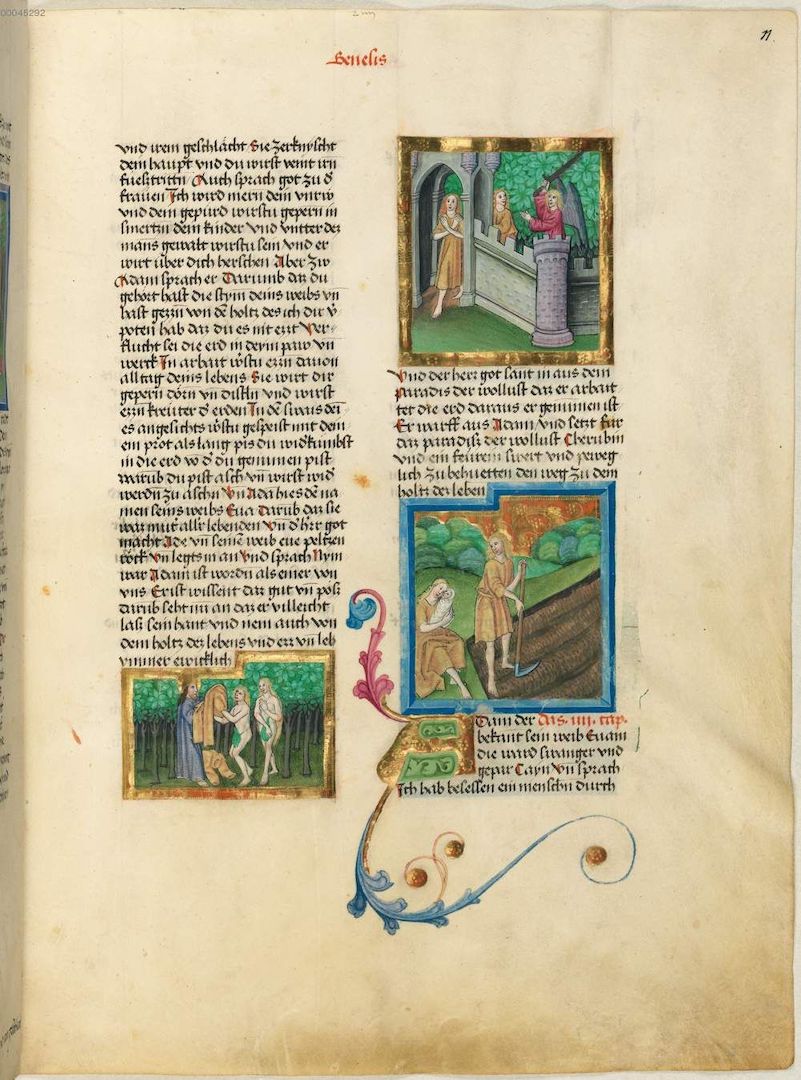 00045292
Genesis
11.
vnd irem geschlächt Sie zerknyscht
dein haupt vnd du wirst irem
fuesztritn Auch sprach got zu d̕
frauen Ich wird mern dein
vnd dein gepurd wirstu gepern in
smertzn dein kinder vnd vntter des
mans gewalt wirstu sein vnd er
wirt über dich herschen Aber zw
Adam sprach er Darumb daz du
gehört hast die stym deins weibs vn̄
hast gezzn von dē holtz des ich dir v̕
poten hab daz du es nit ezzt Ver-
flucht sei die erd in deym vn̄
werck In arbait wstu ezzn dauon
all tag deins lebens Sie wirt dir
gepern dörn vn̄ distln vnd wirst
ezzn kreüter d̕ erden In dē swais dei
es angesichts wstu gespeist mit deim
em prot als lang pis du widkumbst
in die erd vō d̕ du genumen pist
warūb du pist asch vn̄ wirst wid
werdn zu aschn Vn̄ Adā hies dē na
men seins weibs Eua Darūb daz sie
waz mut̕ all̕r lebenden Vn̄ d̕ h̕rr got
macht Ade vn̄ seinē weib eüe peltzen
röck vn̄ legts in an Vnd sprach Nym
war Adam ist wordn als einer von
vns Er ist wissent daz gut vn̄ pösz
darūb seht nu an daz er villeicht
lasz sein hant vnd nem auch von
dem holtz des lebens vnd ezz vn̄ leb
ymmer ewicklich
Vnd der herr got sant in aus dem
paradis der wollust daz er arbait
tet die erd daraus er genumen ist
Er warff aus Adam vnd setzt für
daz paradisz der wollust Cherubin
vnd ein feürein swert vnd peweg
lich zu behuetten den weg zu dem
holtz des leben
Adam der Das . iiij . cap.
bekant sein weib Euam
die ward swanger vnd
gepar Cayn Vn̄ sprach
Ich hab besessen ein menschn durch